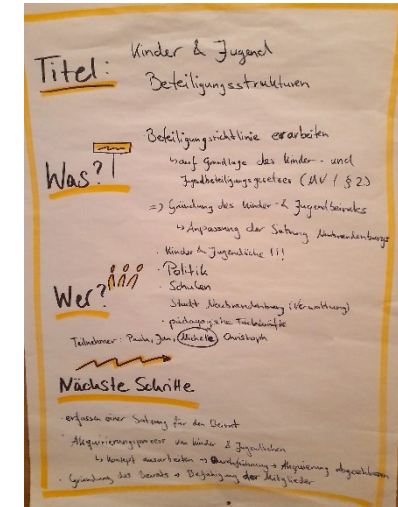 Titel: Kinder & Jugend
Beteiligungsstrukturen
Was? Beteiligungsrichtlinie erarbeiten
↳ auf Grundlage des Kinder- und
Jugendbeteiligungsgesetzes (MV / § 2)
=> Gründung des Kinder- & Jugendbeirates
↳ Anpassung der Satzung Neubrandenburgs
Wer? · Kinder & Jugendliche !!!
· Politik
· Schulen
Stadt Neubrandenburg (Verwaltung)
· pädagogische Fachkräfte
Teilnehmer: Paula, Jan, Michelle Christoph
Nächste Schritte
· erfassen einer Satzung für den Beirat
· Akquirierungsprozess von Kinder & Jugendlichen
↳ Konzept ausarbeiten → Durchführung → Akquirierung abgeschlossen
· Gründung des Beirats → Befähigung der Mitglieder